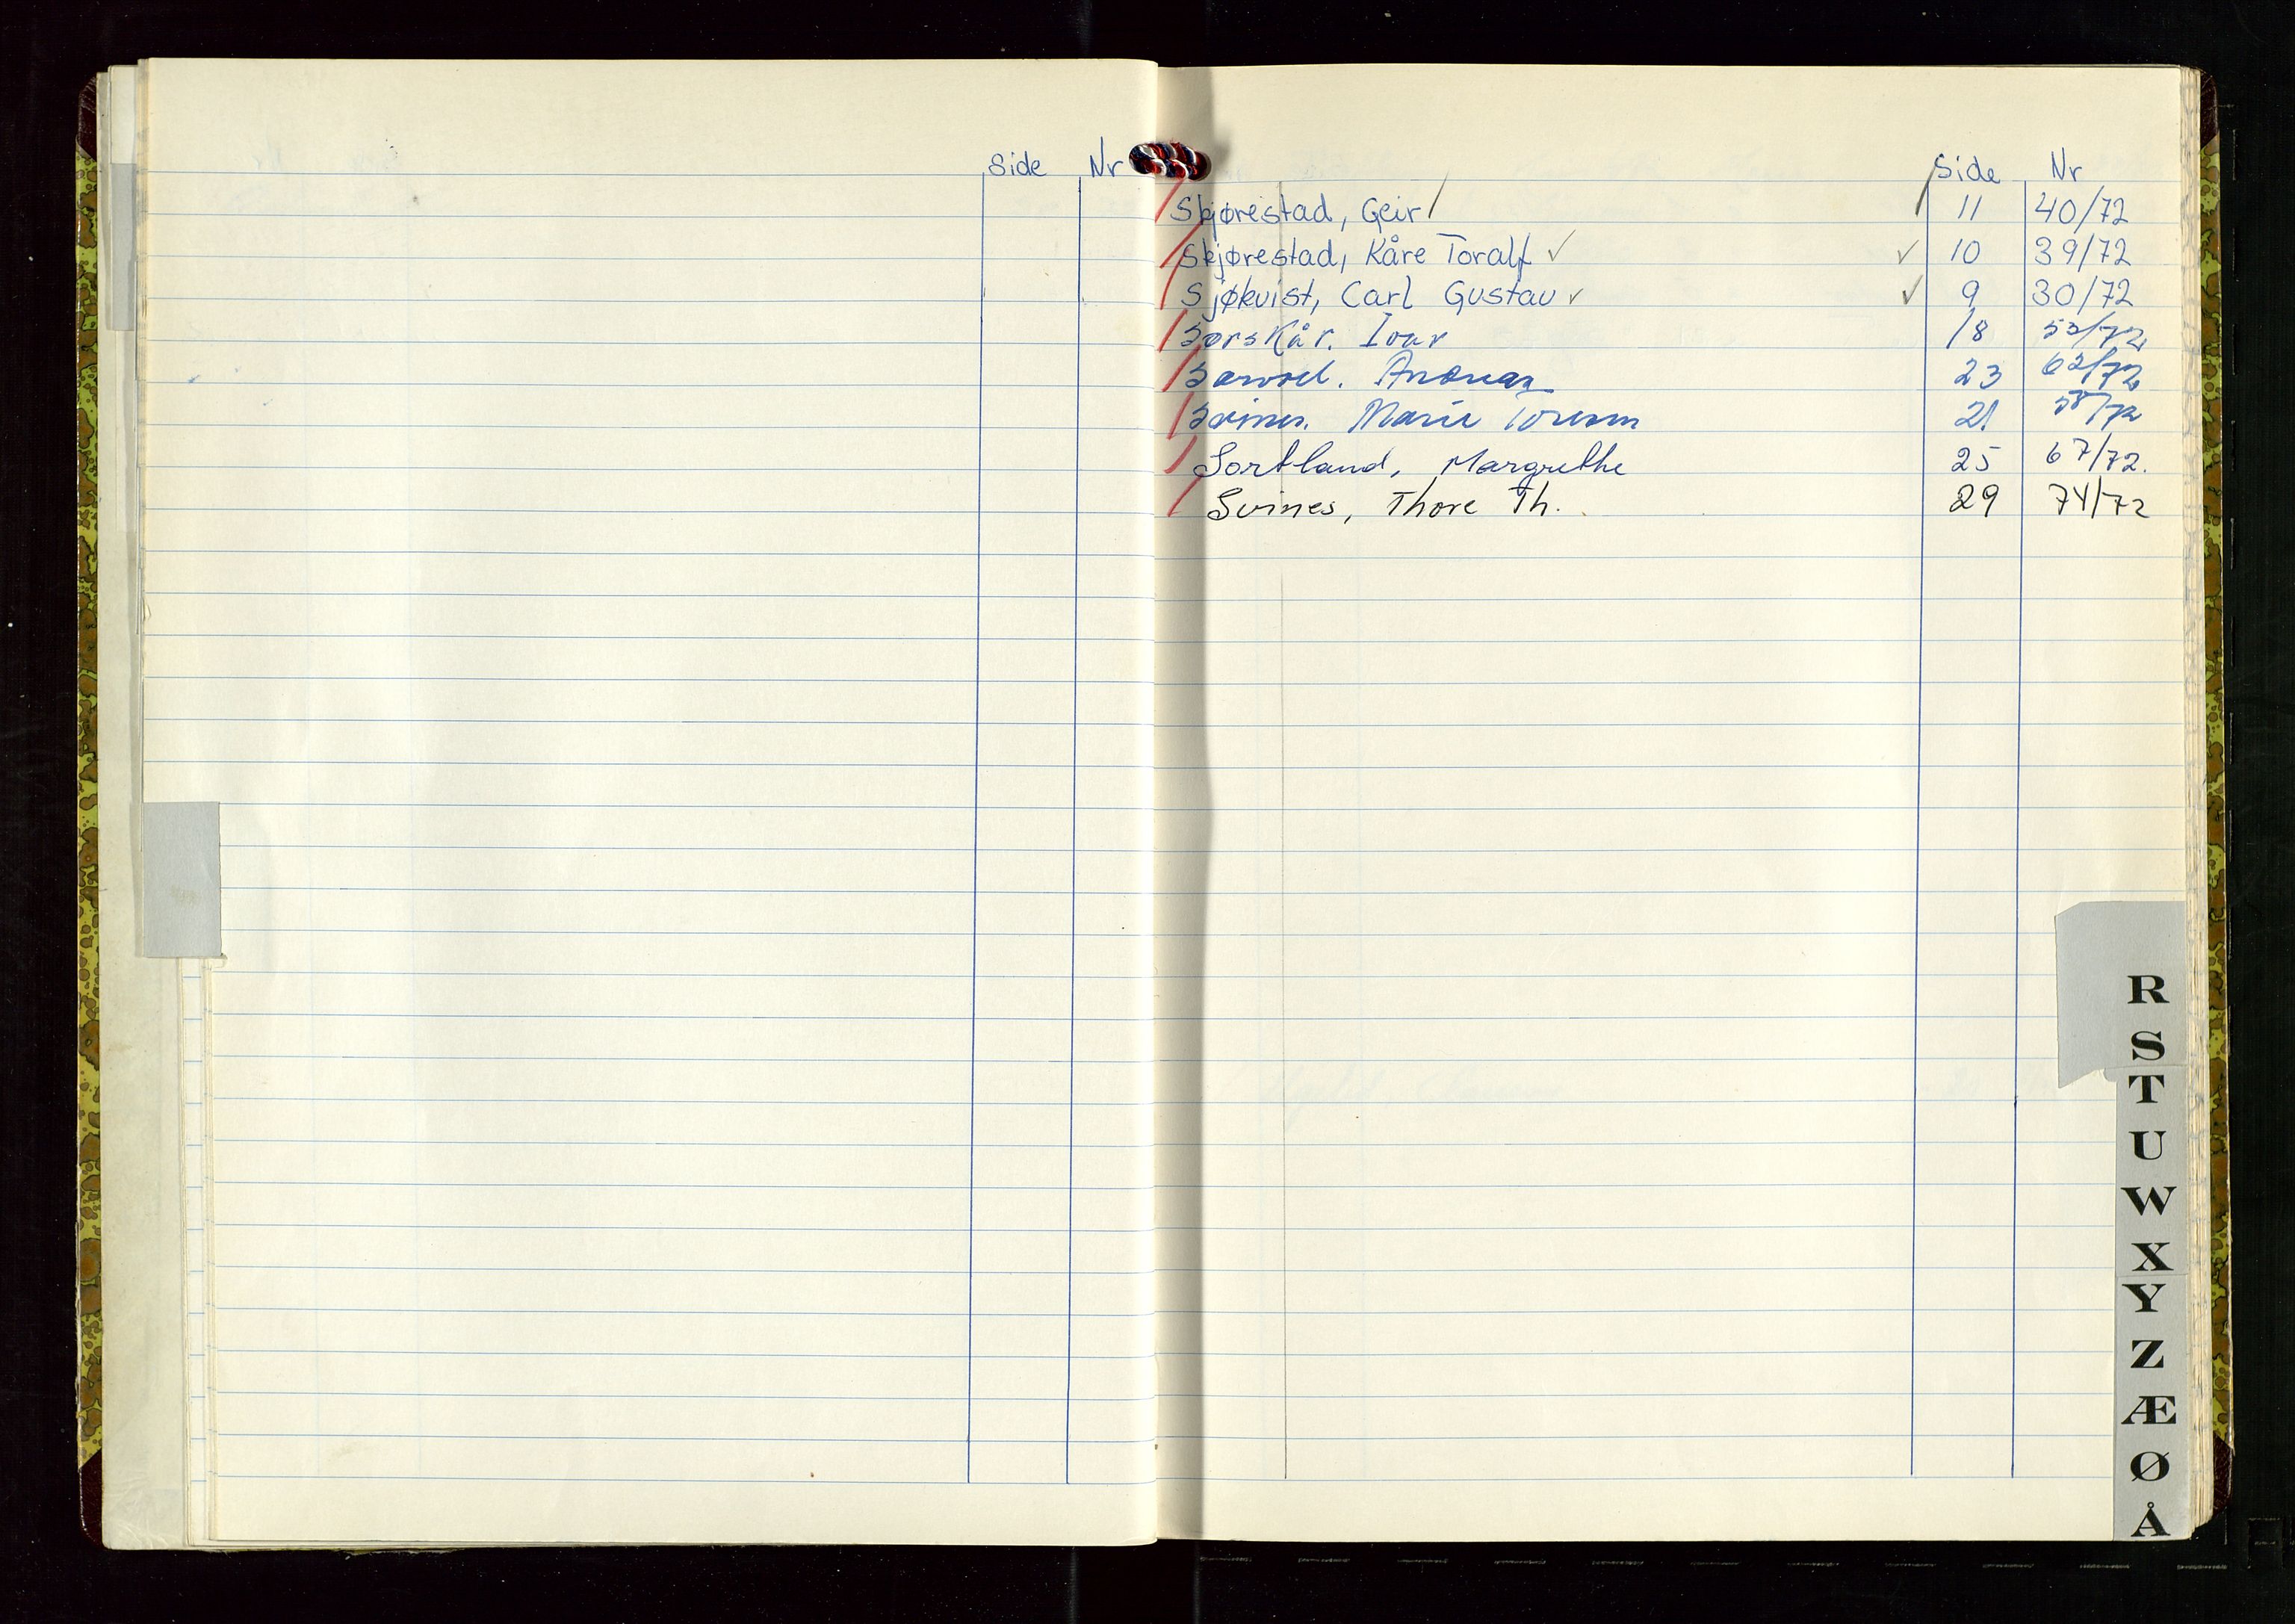 Side Nr
Side Nr
Skjørestad, Geir 11 40/72
Skjørestad, Kåre Toralf ✓ ✓ 10 39/72
Sjøkvist, Carl Gustav ✓ ✓ 9 30/72
Sørskår. Ivar 18 53/72
23 62/72
Svines. Marie Toresen 21 58/72
Sortland, Margrethe 25 67/72.
Svines, Thore Th. 29 74/72
R
S
T
U
W
X
Y
Z
Æ
Ø
Å